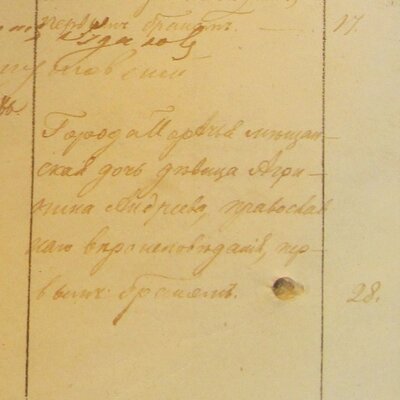 первымъ бракомъ. 17.
Города мѣщан-
ская дочь дѣвица Агри-
пина Андреева, православ
наго вѣроисповѣданія, пер-
вымъ бракомъ. 28.